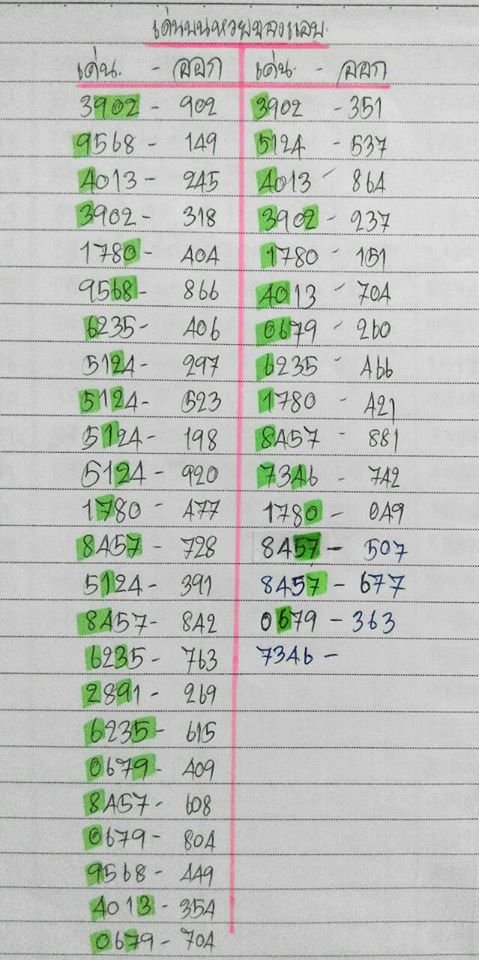 เด่นบนหวยซองแอบ
เด่น. - ออก
3902 - 902
9568 - 149
4013 - 245
3902 - 318
1780 - 404
9568 - 866
6235 - 406
5124 - 297
5124 - 523
5124 - 198
5124 - 920
1780 - 477
8457 - 728
5124 - 391
8457 - 842
6235 - 763
2891 - 269
6235 - 615
0679 - 409
8457 - 608
0679 - 804
9568 - 449
4013 - 354
0679 - 704
เด่น. - ออก
3902 - 351
5124 - 537
4013 - 864
3902 - 237
1780 - 151
4013 - 704
0679 - 260
6235 - 466
1780 - 421
8457 - 881
7346 - 742
1780 - 049
8457 - 507
8457 - 677
0679 - 363
7346 -